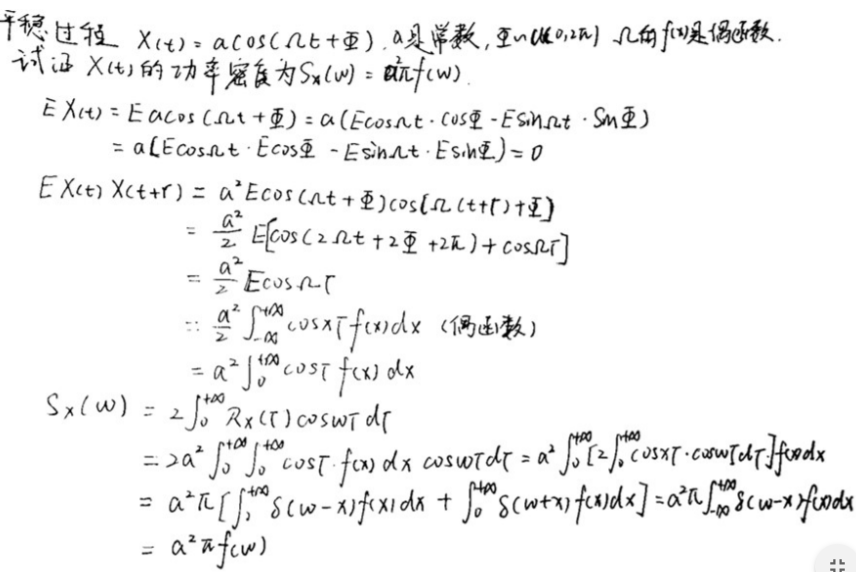 平稳过程 X(t) = acos(Ωt+Φ). a是常数, Φ~U(0,2π) Ω的f(x)是偶函数.
试证 X(t)的功率密度为Sx(ω) = a²πf(ω).
EX(t) = Eacos(Ωt+Φ) = a(EcosΩt·cosΦ - EsinΩt·SinΦ)
= a[EcosΩt·EcosΦ - EsinΩt·EsinΦ) = 0
EX(t)X(t+τ) = a²Ecos(Ωt+Φ)cos[Ω(t+τ)+Φ]
= a²/2 E[cos(2Ωt+2Φ+2π)+cosΩτ]
= a²/2 EcosΩτ
= a²/2 ∫_{-∞}^{+∞} cosxτ f(x)dx (偶函数)
= a² ∫_0^{+∞} cosτ f(x) dx
Sx(ω) = 2∫_0^{+∞} Rx(τ)cosωτ dτ
= 2a² ∫_0^{+∞} ∫_0^{+∞} cosτ·f(x) dx cosωτdτ = a² ∫_0^{+∞} [2∫_0^{+∞} cosxτ·cosωτdτ]f(x)dx
= a²π[∫_0^{+∞} δ(ω-x)f(x)dx + ∫_0^{+∞} δ(ω+x)f(x)dx] = a²π∫_{-∞}^{+∞} δ(ω-x)f(x)dx
= a²πf(ω)